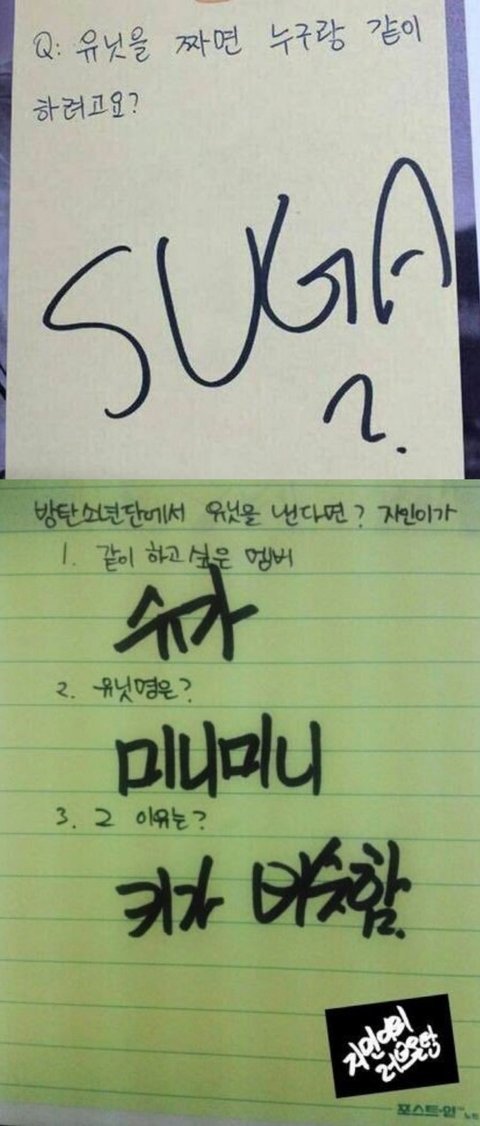 Q: 유닛을 짜면 누구랑 같이
하려고요?
SUGA
?.
방탄소년단에서 유닛을 낸다면? 지민이가
1. 같이 하고 싶은 멤버
슈가
2. 유닛명은?
미니미니
3. 그 이유는?
키가 비슷함.
지민이의
포스트-잇™노트